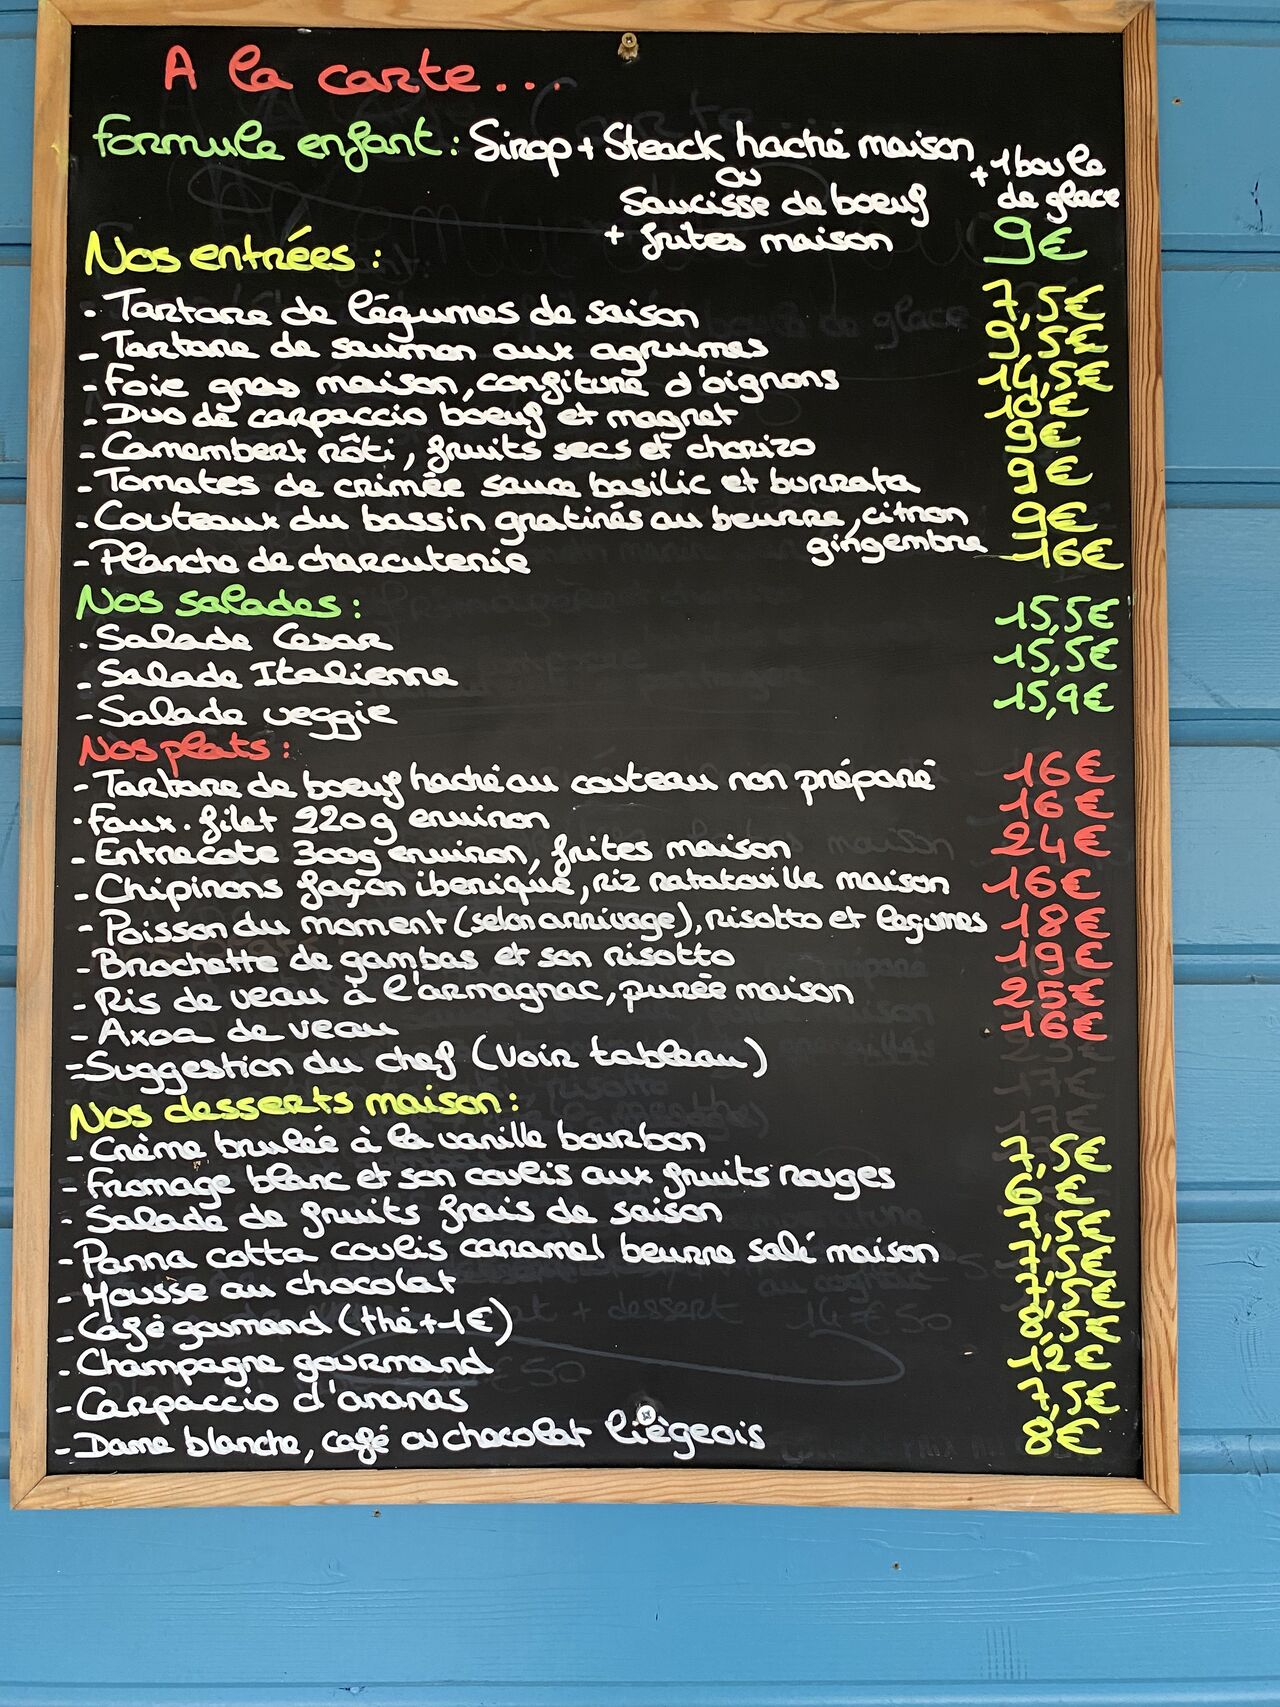 A la carte...
Formule enfant : Sirop + Steack haché maison + 1 boule
ou
de glace
Saucisse de boeuf
+ frites maison 9€
Nos entrées :
- Tartare de légumes de saison 7,5€
- Tartare de saumon aux agrumes 9,5€
- Foie gras maison, confiture d'oignons 14,5€
- Duo de carpaccio boeuf et magret 10€
- Camembert rôti, fruits secs et chorizo 9€
- Tomates de crimée sauce basilic et burrata 9€
- Couteaux du bassin gratinés au beurre, citron 9€
gingembre
- Planche de charcuterie 16€
Nos salades :
- Salade Cesar 15,5€
- Salade Italienne 15,5€
- Salade veggie 15,9€
Nos plats :
- Tartare de boeuf haché au couteau non préparé 16€
- Faux-filet 220g environ 16€
- Entrecote 300g environ, frites maison 24€
- Chipirons façon iberique, riz ratatouille maison 16€
- Poisson du moment (selon arrivage), risotto et légumes 18€
- Brochette de gambas et son risotto 19€
- Ris de veau à l'armagnac, purée maison 25€
- Axoa de veau 16€
- Suggestion du chef (voir tableau)
Nos desserts maison :
- Crème brulée à la vanille bourbon 7,5€
- Fromage blanc et son coulis aux fruits rouges
- Salade de fruits frais de saison
- Panna cotta coulis caramel beurre salé maison
- Mousse au chocolat
- Café gourmand (thé +1€)
- Champagne gourmand 12€
- Carpaccio d'ananas 7,5€
- Dame blanche, café ou chocolat liègeois 8€